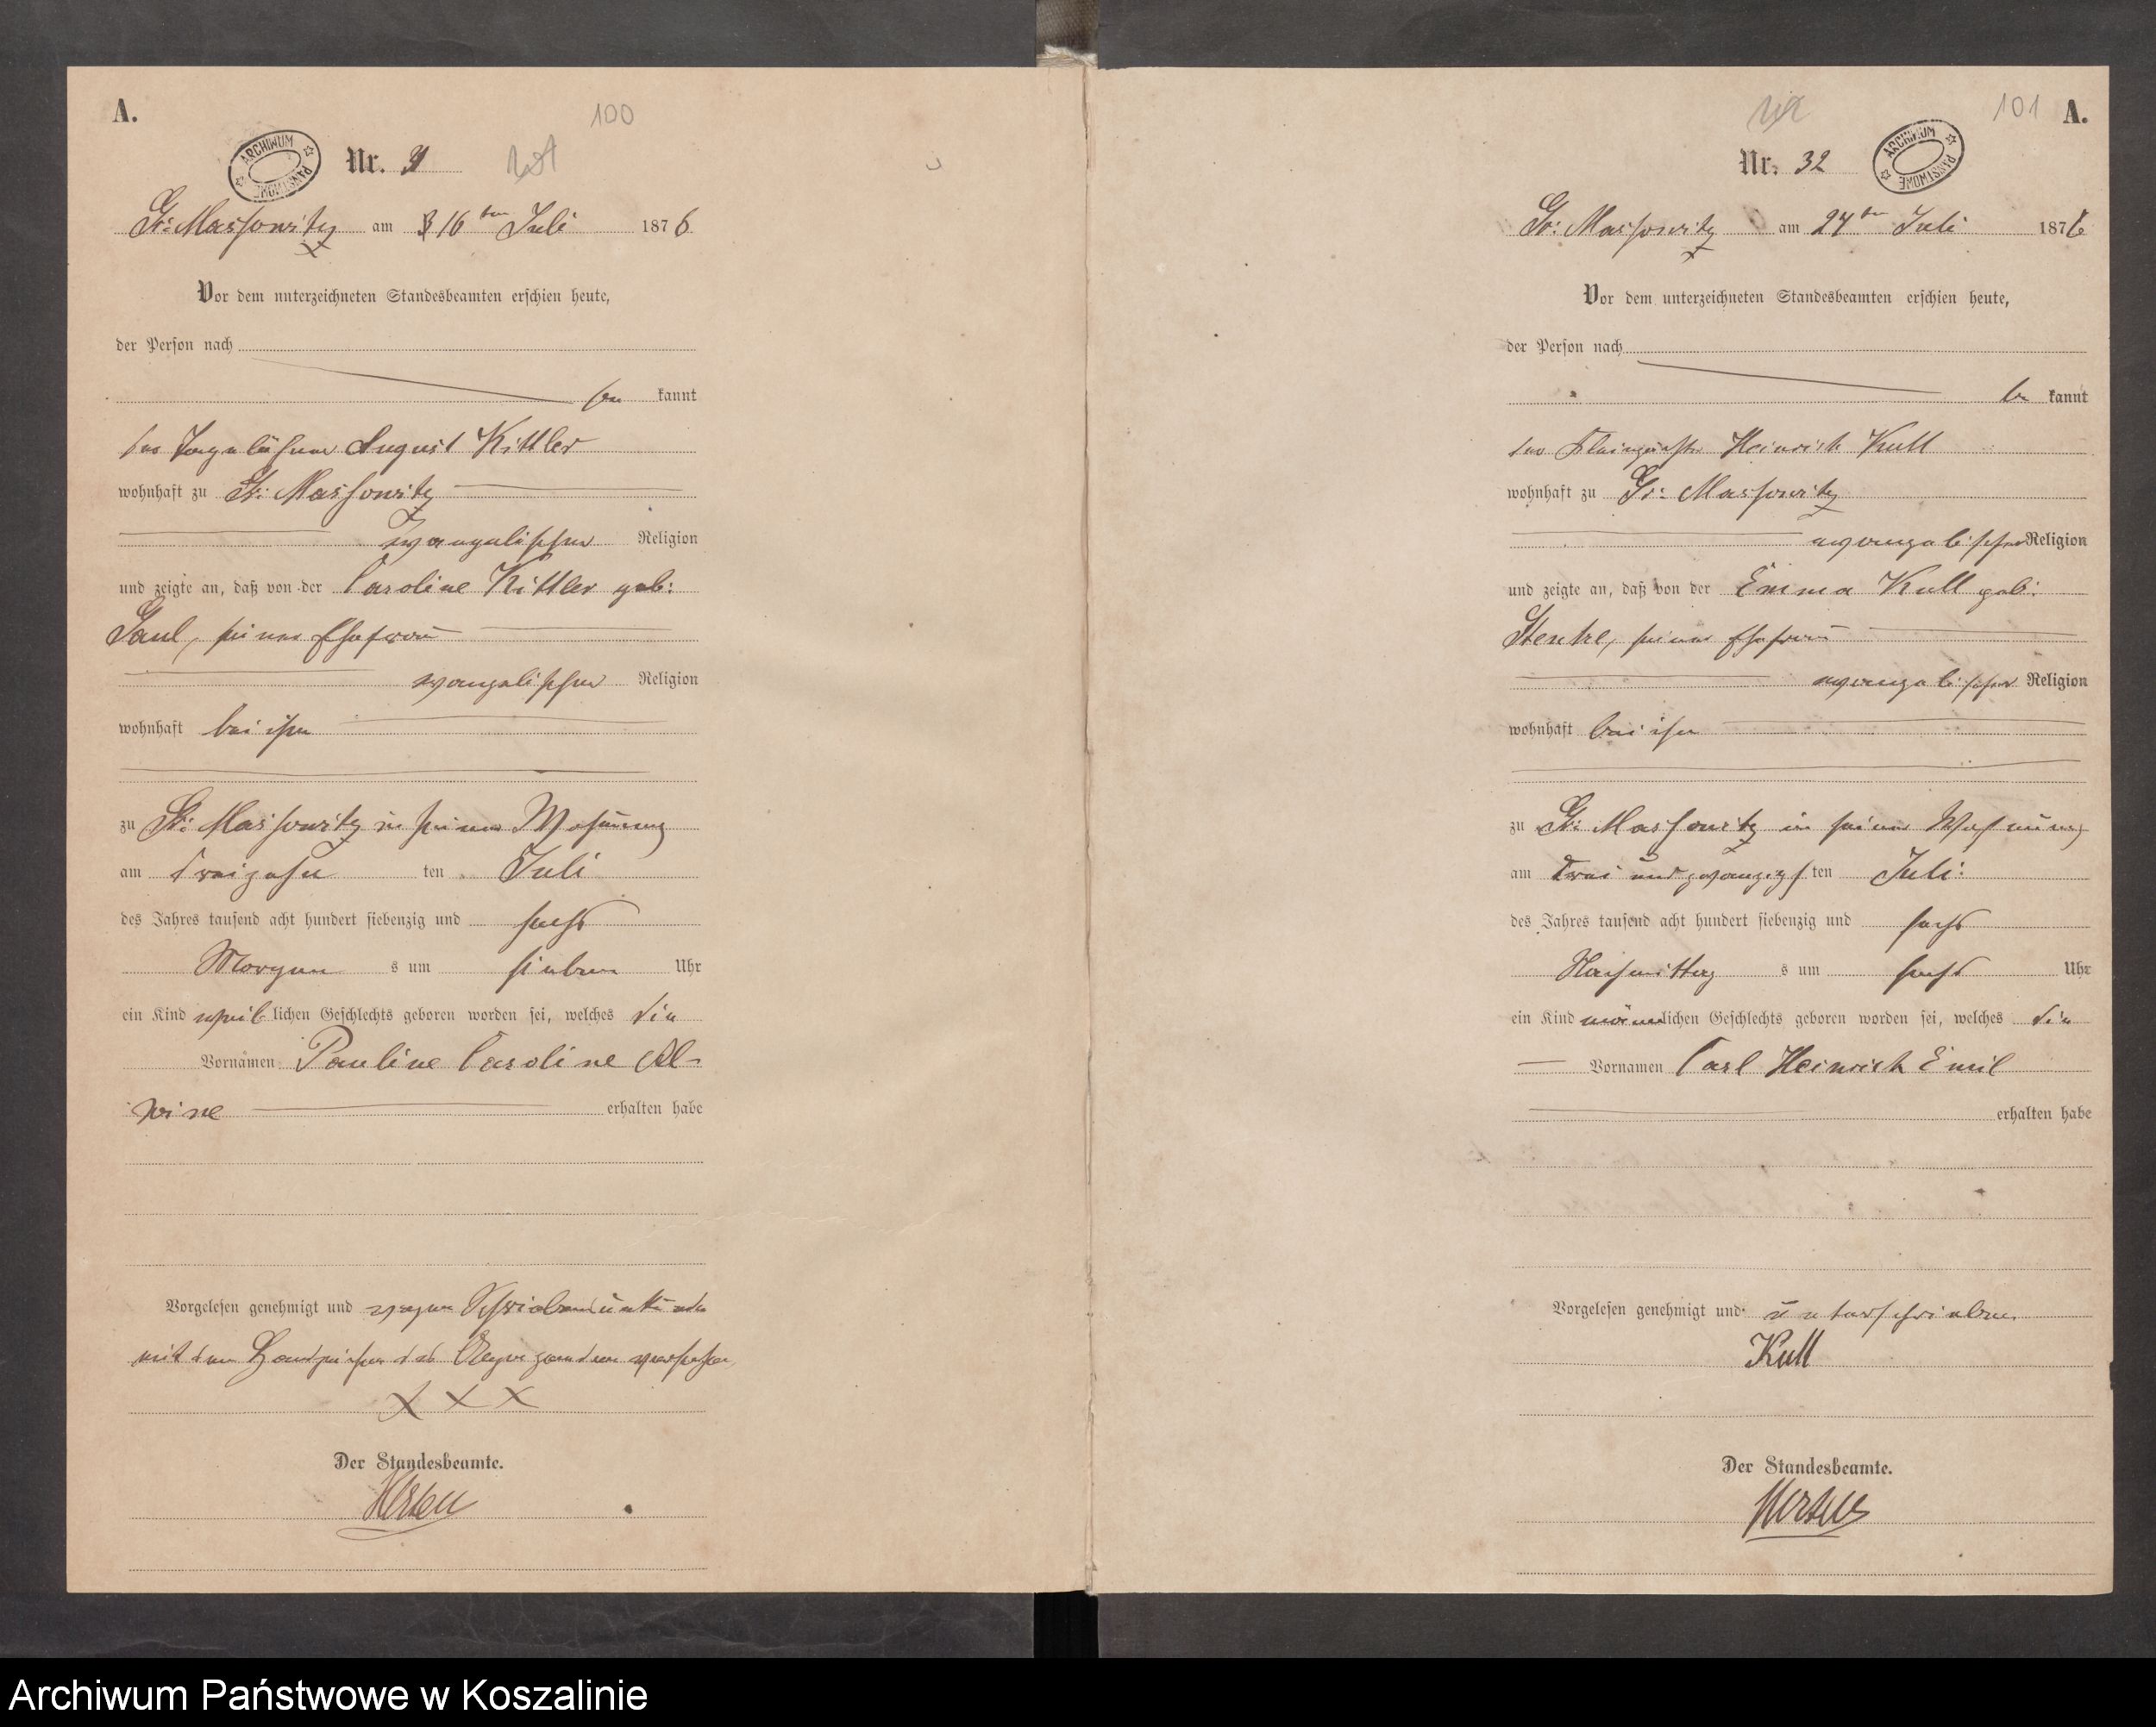 A.
100
ARCHIWUM PAŃSTWOWE
Nr. 31
Gr: Massowitz am 16ten Juli 1876
Vor dem unterzeichneten Standesbeamten erschien heute,
der Person nach
be kannt
der Tagelöhner August Kittler
wohnhaft zu Gr: Massowitz
evangelischer Religion
und zeigte an, daß von der Caroline Kittler geb:
Gaul, seiner Ehefrau
evangelischer Religion
wohnhaft bei ihm
zu Gr: Massowitz in seiner Wohnung
am dreizehn ten Juli
des Jahres tausend acht hundert siebenzig und sechs
Morgen s um sieben Uhr
ein Kind weib lichen Geschlechts geboren worden sei, welches die
Vornamen Pauline Caroline Al-
wine erhalten habe
Vorgelesen genehmigt und wegen Schreibensunkunde
mit dem Handzeichen des versehen
X X X
Der Standesbeamte.
101
A.
Nr. 32
ARCHIWUM PAŃSTWOWE
Gr: Massowitz am 24ten Juli 1876
Vor dem unterzeichneten Standesbeamten erschien heute,
der Person nach
be kannt
der Heinrich Kull
wohnhaft zu Gr: Massowitz
evangelischer Religion
und zeigte an, daß von der Emma Kull geb:
Stenke, seiner Ehefrau
evangelischer Religion
wohnhaft bei ihm
zu Gr: Massowitz in seiner Wohnung
am drei und zwanzigs ten Juli:
des Jahres tausend acht hundert siebenzig und sechs
Nachmittag s um sechs Uhr
ein Kind männ lichen Geschlechts geboren worden sei, welches die
Vornamen Carl Heinrich Emil
erhalten habe
Vorgelesen genehmigt und unterschrieben
Kull
Der Standesbeamte.
Archiwum Państwowe w Koszalinie